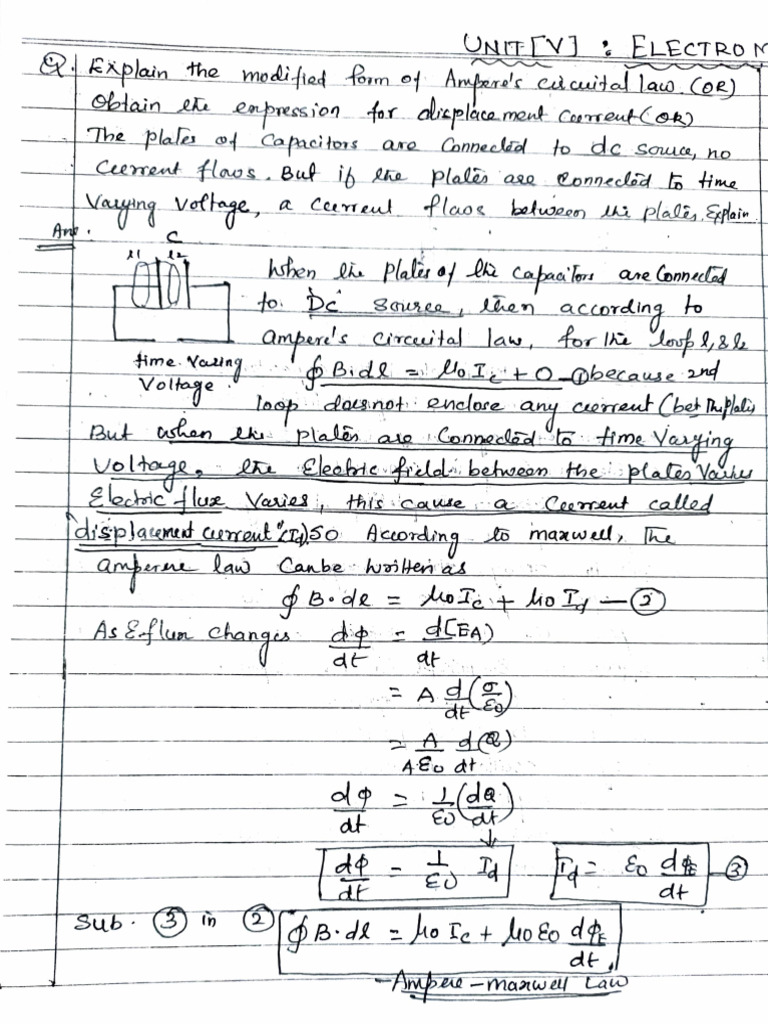 UNIT-[V] : ELECTROM
Q. Explain the modified form of Ampere's circuital law. (OR)
Obtain the expression for displacement current (OR)
The plates of capacitors are connected to dc source, no
current flows. But if the plates are connected to time
Varying Voltage, a current flows between the plates, Explain
Ans.
C
l1 l2
time Varing
Voltage
When the plates of the capacitors are connected
to DC source, then according to
ampere's circuital law, for the loop l1 & l2
∮ B.dl = μ0 Ic + 0 — ① because 2nd
loop does not enclose any current (bet the plates
But when the plates are connected to time Varying
Voltage, the Electric field between the plates Varies
Electric flux Varies, this cause a current called
"displacement current" (Id). So According to maxwell, The
amperere law can be written as
∮ B.dl = μ0 Ic + μ0 Id — ②
As E-flux changes dφ/dt = d[EA]/dt
= A d/dt (σ/ε0)
= A/A.ε0 d(Q)/dt
dφ/dt = 1/ε0 (dQ/dt)
dφ/dt = 1/ε0 Id Id = ε0 dφE/dt — ③
Sub. ③ in ② ∮ B.dl = μ0 Ic + μ0 ε0 dφE/dt.
- Ampere - maxwell Law